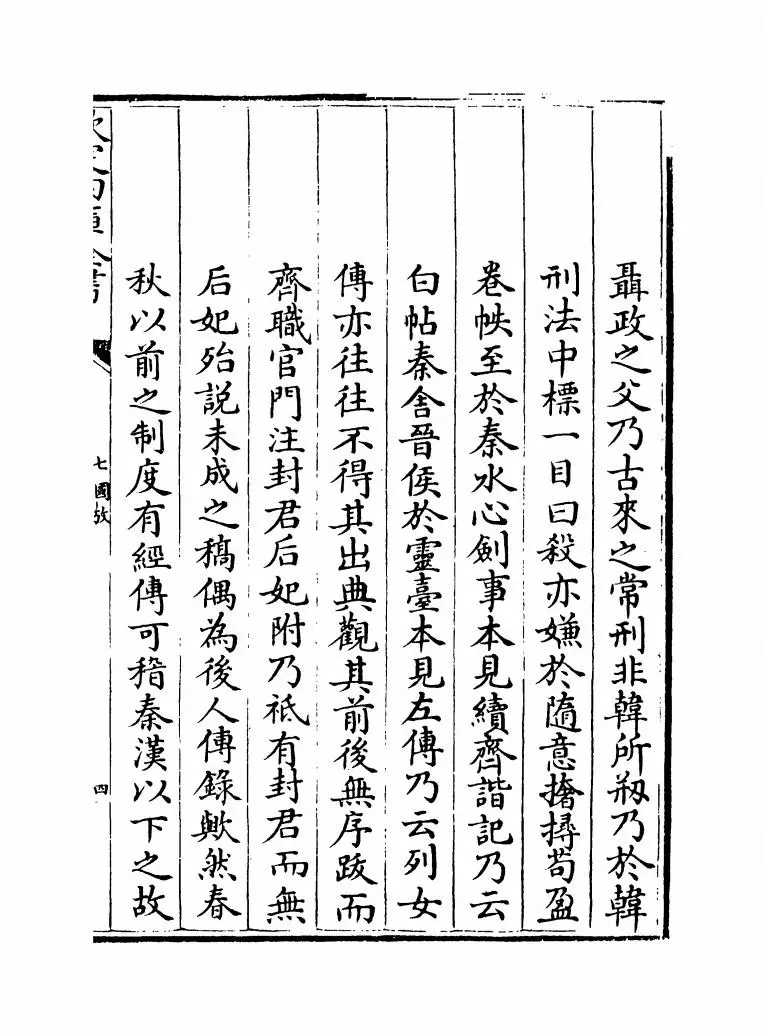 聶政之父乃古來之常刑非韓所剏乃於韓
刑法中標一目曰殺亦嫌於隨意撦撏苟盈
卷帙至於秦水心劍事本見續齊諧記乃云
白帖秦舍晉侯於靈臺本見左傳乃云列女
傳亦往往不得其出典觀其前後無序跋而
齊職官門注封君后妃附乃祗有封君而無
后妃殆説未成之稿偶為後人傳錄歟然春
秋以前之制度有經傳可稽秦漢以下之故
欽定四庫全書
七國攷
四